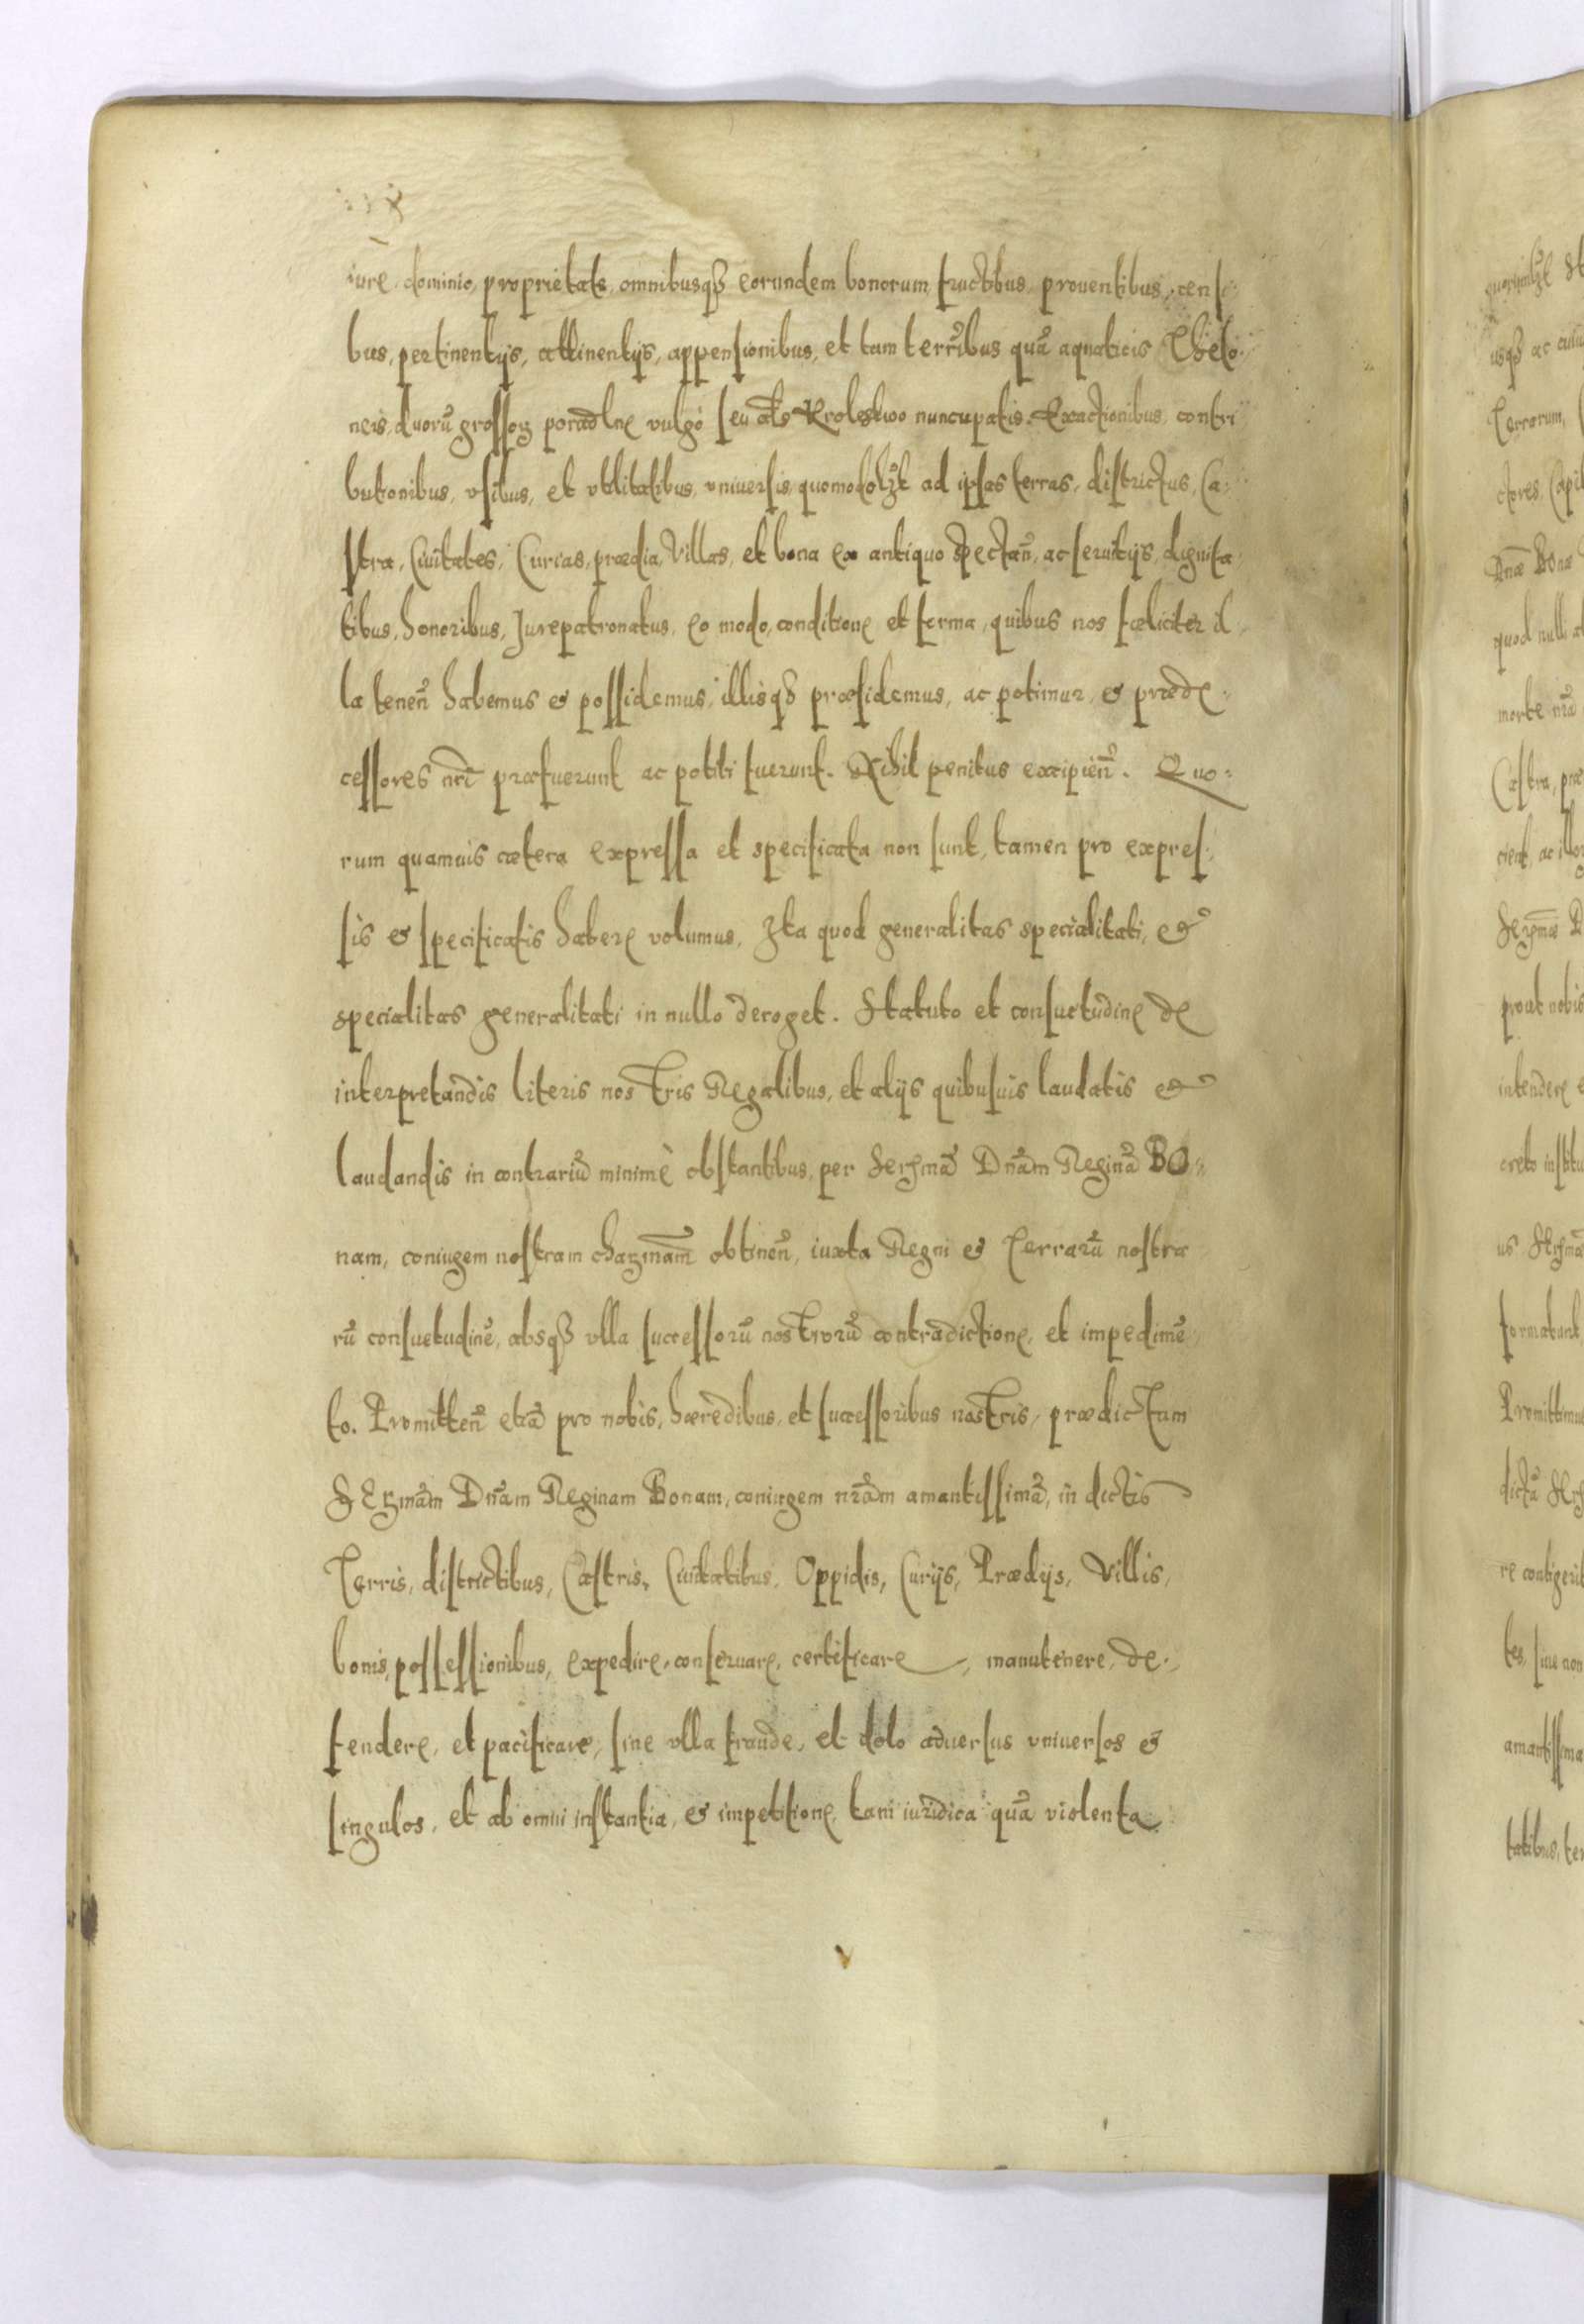 iure, dominio, proprietate, omnibusqꝫ eorundem bonorum, fructibus, prouentibus, censi
bus, pertinentijs, attinentijs, appensionibus, et tam terrĩbus quã aquaticis Thelo
neis, duorũ grossoꝝ poradlne vulgò seu als Krolestwo nuncupatis. Exactionibus, contri
butionibus, vsibus, et vtilitatibus, vniuersis, quomodolꝫt ad ipsas terras, districtus, Ca
stra, Ciuitates, Curias, prædia, Villas, et bona ex antiquo spectañ, ac seruitijs, dignita
tibus, honoribus, Jurepatronatus, eo modo, conditione et forma, quibus nos fœliciter il
la teneñ habemus & possidemus, illisqꝫ præsidemus, ac potimur, & præde:
cessores nrĩ præfuerunt ac potiti fuerunt. Nihil penitus excipieñ. Quo:
rum quamuis cætera expressa et specificata non sunt, tamen pro expres:
sis & specificatis habere volumus, Ita quod generalitas specialitati, &
specialitas generalitati in nullo deroget. Statuto et consuetudine de
interpretandis literis nostris Regalibus, et alijs quibusuis laudatis &
laudandis in contrariũ minimè obstantibus, per Serꝫmã Dnãm Reginã BO:
nam, coniugem nostram chaꝫmam̃ obtineñ, iuxta Regni & Terrarũ nostra
rũ consuetudinẽ, absqꝫ vlla successorũ nostrorũ contradictione, et impedimẽ
to. Promitteñ etiã pro nobis, hæredibus, et successoribus nostris, prædictam
SErꝫmãm Dnãm Reginam Bonam, coniugem nrãm amantissimã, in dictis
Terris, districtibus, Castris, Ciuitatibus, Oppidis, Curijs, Prædijs, Villis,
bonis, possessionibus, expedire, conseruare, certificare, manutenere, de:
fendere, et pacificare, sine vlla fraude, et dolo aduersus vniuersos &
singulos, et ab omni instantia, & impetitione, tam iuridica quã violenta